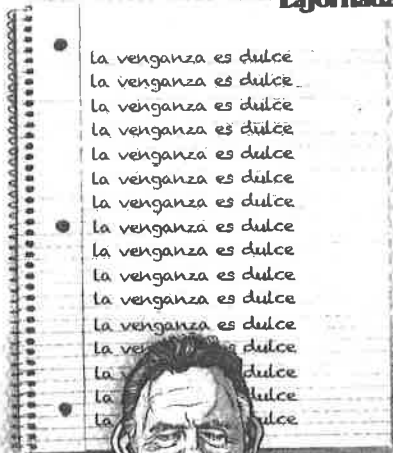 La Jornada
La venganza es dulce
La venganza es dulce
La venganza es dulce
La venganza es dulce
La venganza es dulce
La venganza es dulce
La venganza es dulce
La venganza es dulce
La venganza es dulce
La venganza es dulce
La venganza es dulce
La venganza es dulce
La ve dulce
La v dulce
La dulce
La ulce